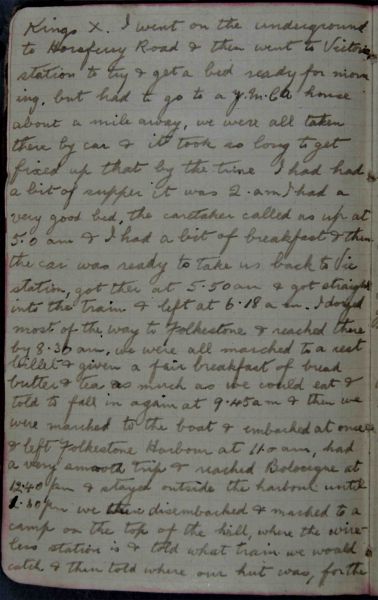 Kings X. I went on the underground
to Horsferry Road & then went to Victoria
station to try & get a bed ready for morn
ing, but had to go to a Y.M.C.A house
about a mile away, we were all taken
there by car & it took so long to get
fixed up that by the time I had had
a bit of supper it was 2.am I had a
very good bed, the caretaker called us up at
5.0 am & I had a bit of breakfast & then
the car was ready to take us back to Vic
station, got ther at 5.50am & got straight
into the train & left at 6.18 a m. I dozed
most of the way to Folkestone & reached there
by 8.30 am, we were all marched to a rest
billet & given a fair breakfast of bread
butter & tea as much as we could eat &
told to fall in again at 9.45am & then we
were marched to the boat & embarked at once
& left Folkestone Harbour at 11.0 am, had
a very smooth trip & reached Bolocigne at
12.40 pm & stayed outside the harbour until
1.30 pm we then disembarked & marched to a
camp on the top of the hill, where the wire-
less station is & told what train we would
catch & then told where our hut was, for the